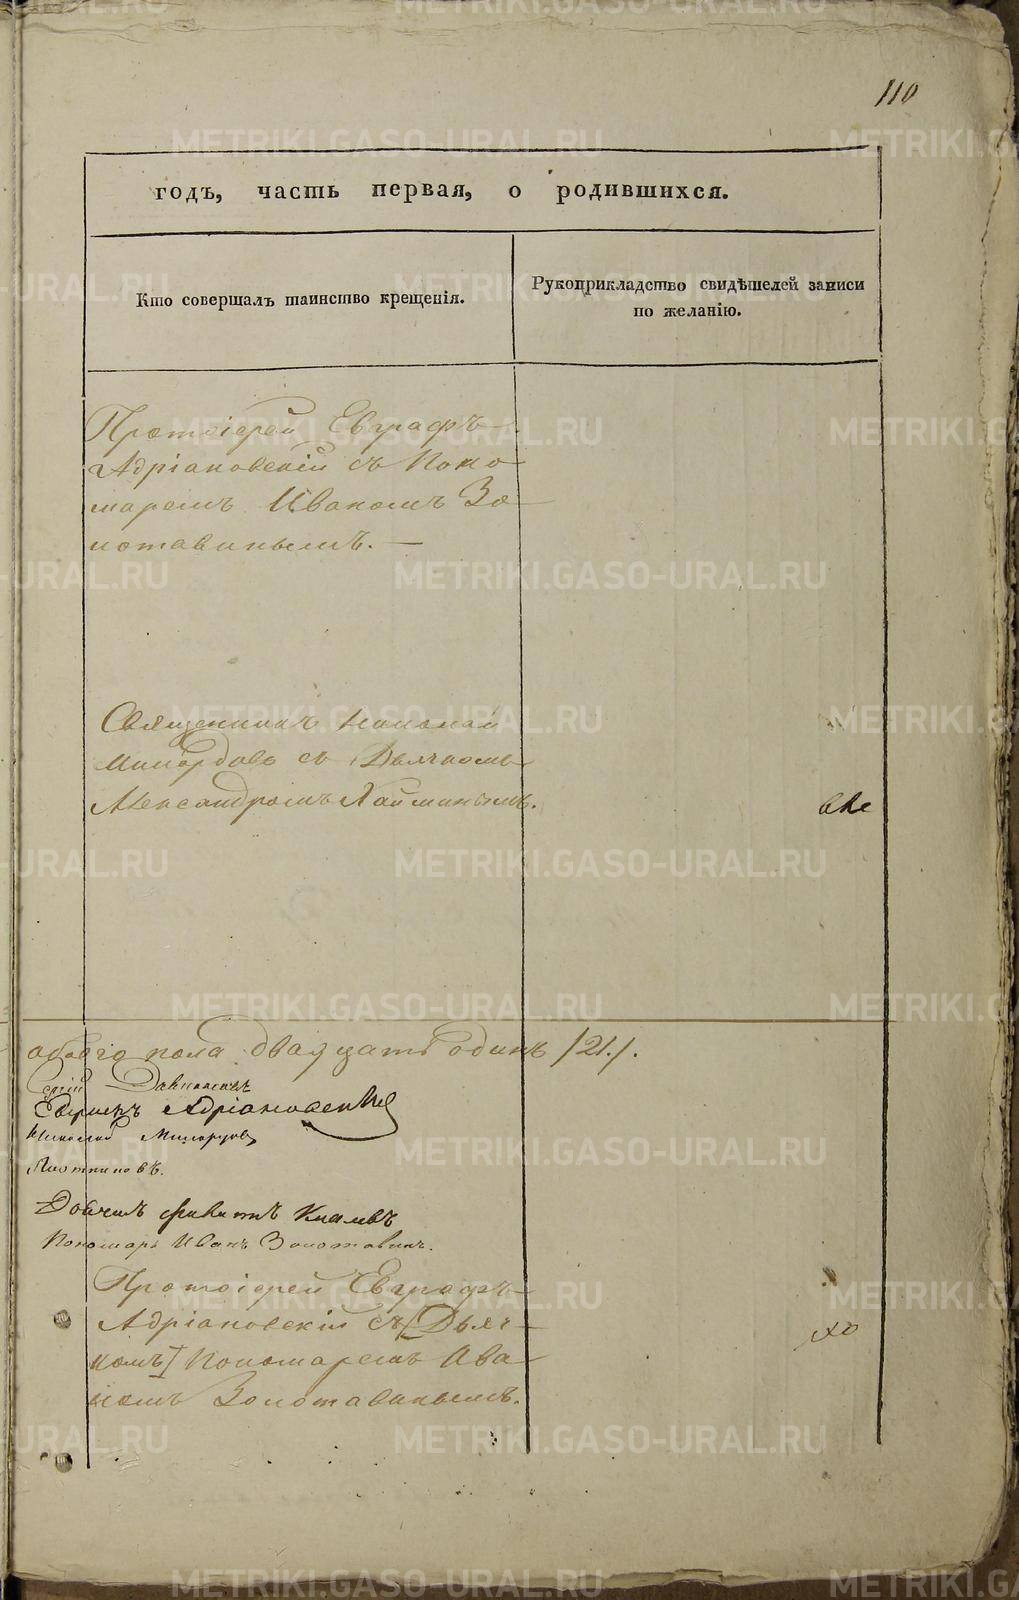 110
годъ, часть первая, о родившихся.
Кто совершалъ таинство крещенія.
Рукоприкладство свидѣтелей записи
по желанію.
Протоіерей Евграфъ
Адріановскій съ Поно-
маремъ Иваномъ Зо-
лотавинымъ. —
Священникъ Николай
съ Дьячкомъ
Александромъ Хайминымъ.
обоего пола двадцать одинъ /21./.
Евграфъ Адріановскій
Николай
Плотниковъ.
Пономарь Иванъ Золотавинъ.
Протоіерей Евграфъ
Адріановскій съ [Дьяч-
комъ] Пономаремъ Ива-
номъ Золотавинымъ.
METRIKI.GASO-URAL.RU